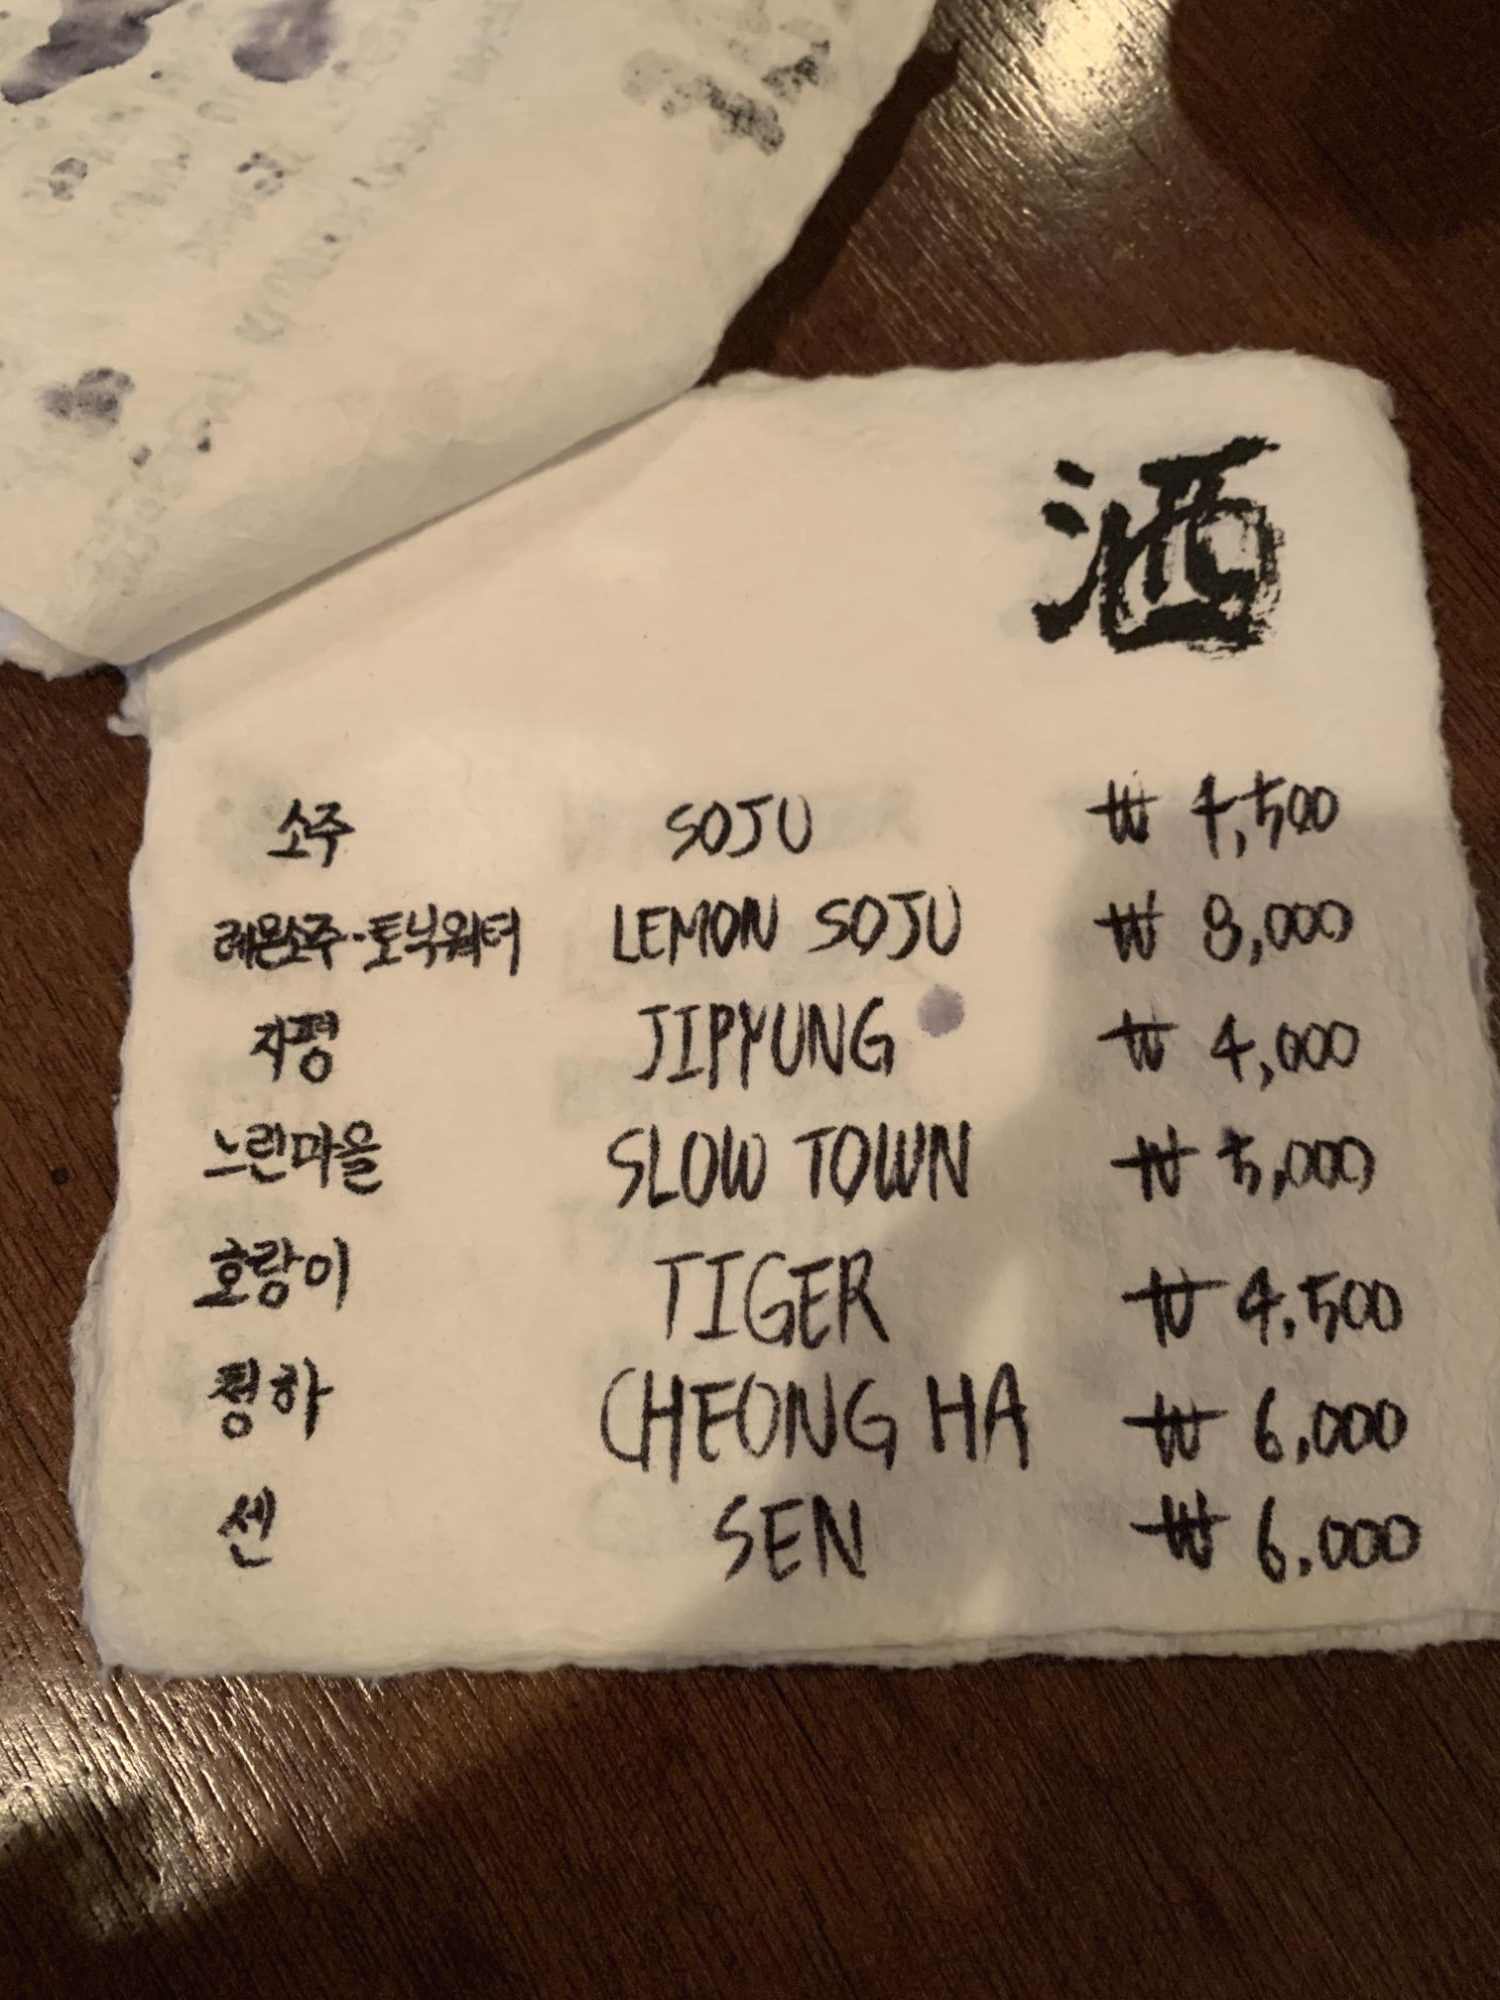 酒
소주 SOJU ₩ 4,500
레몬소주··토닉워터 LEMON SOJU ₩ 8,000
지평 JIPYUNG ₩ 4,000
느린마을 SLOW TOWN ₩ 5,000
호랑이 TIGER ₩ 4,500
청하 CHEONG HA ₩ 6,000
센 SEN ₩ 6,000